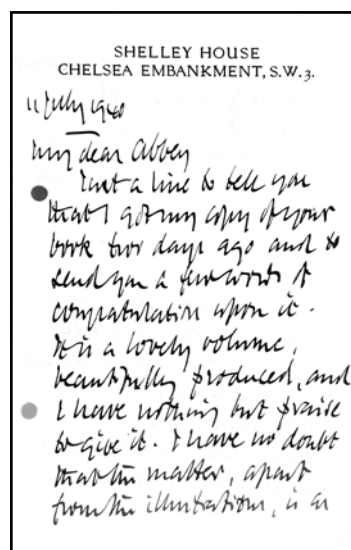 SHELLEY HOUSE
CHELSEA EMBANKMENT, S.W.3.
11 July 1940
My dear Abbey
Just a line to tell you
that I got my copy of your
book two days ago and to
send you a few words of
congratulation upon it.
It is a lovely volume,
beautifully produced, and
I have nothing but praise
to give it. I have no doubt
that the matter, apart
from the illustrations, is as